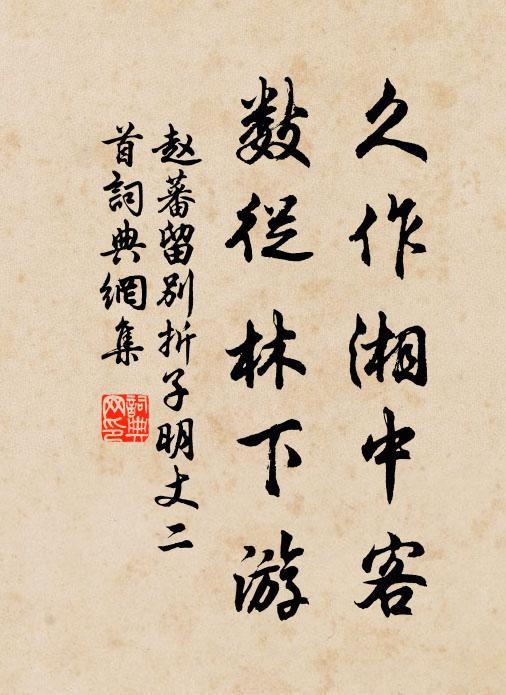 久作湘中客
数從林下游
赵蕃留別折子明丈二
首詞典網集
詞典
网印